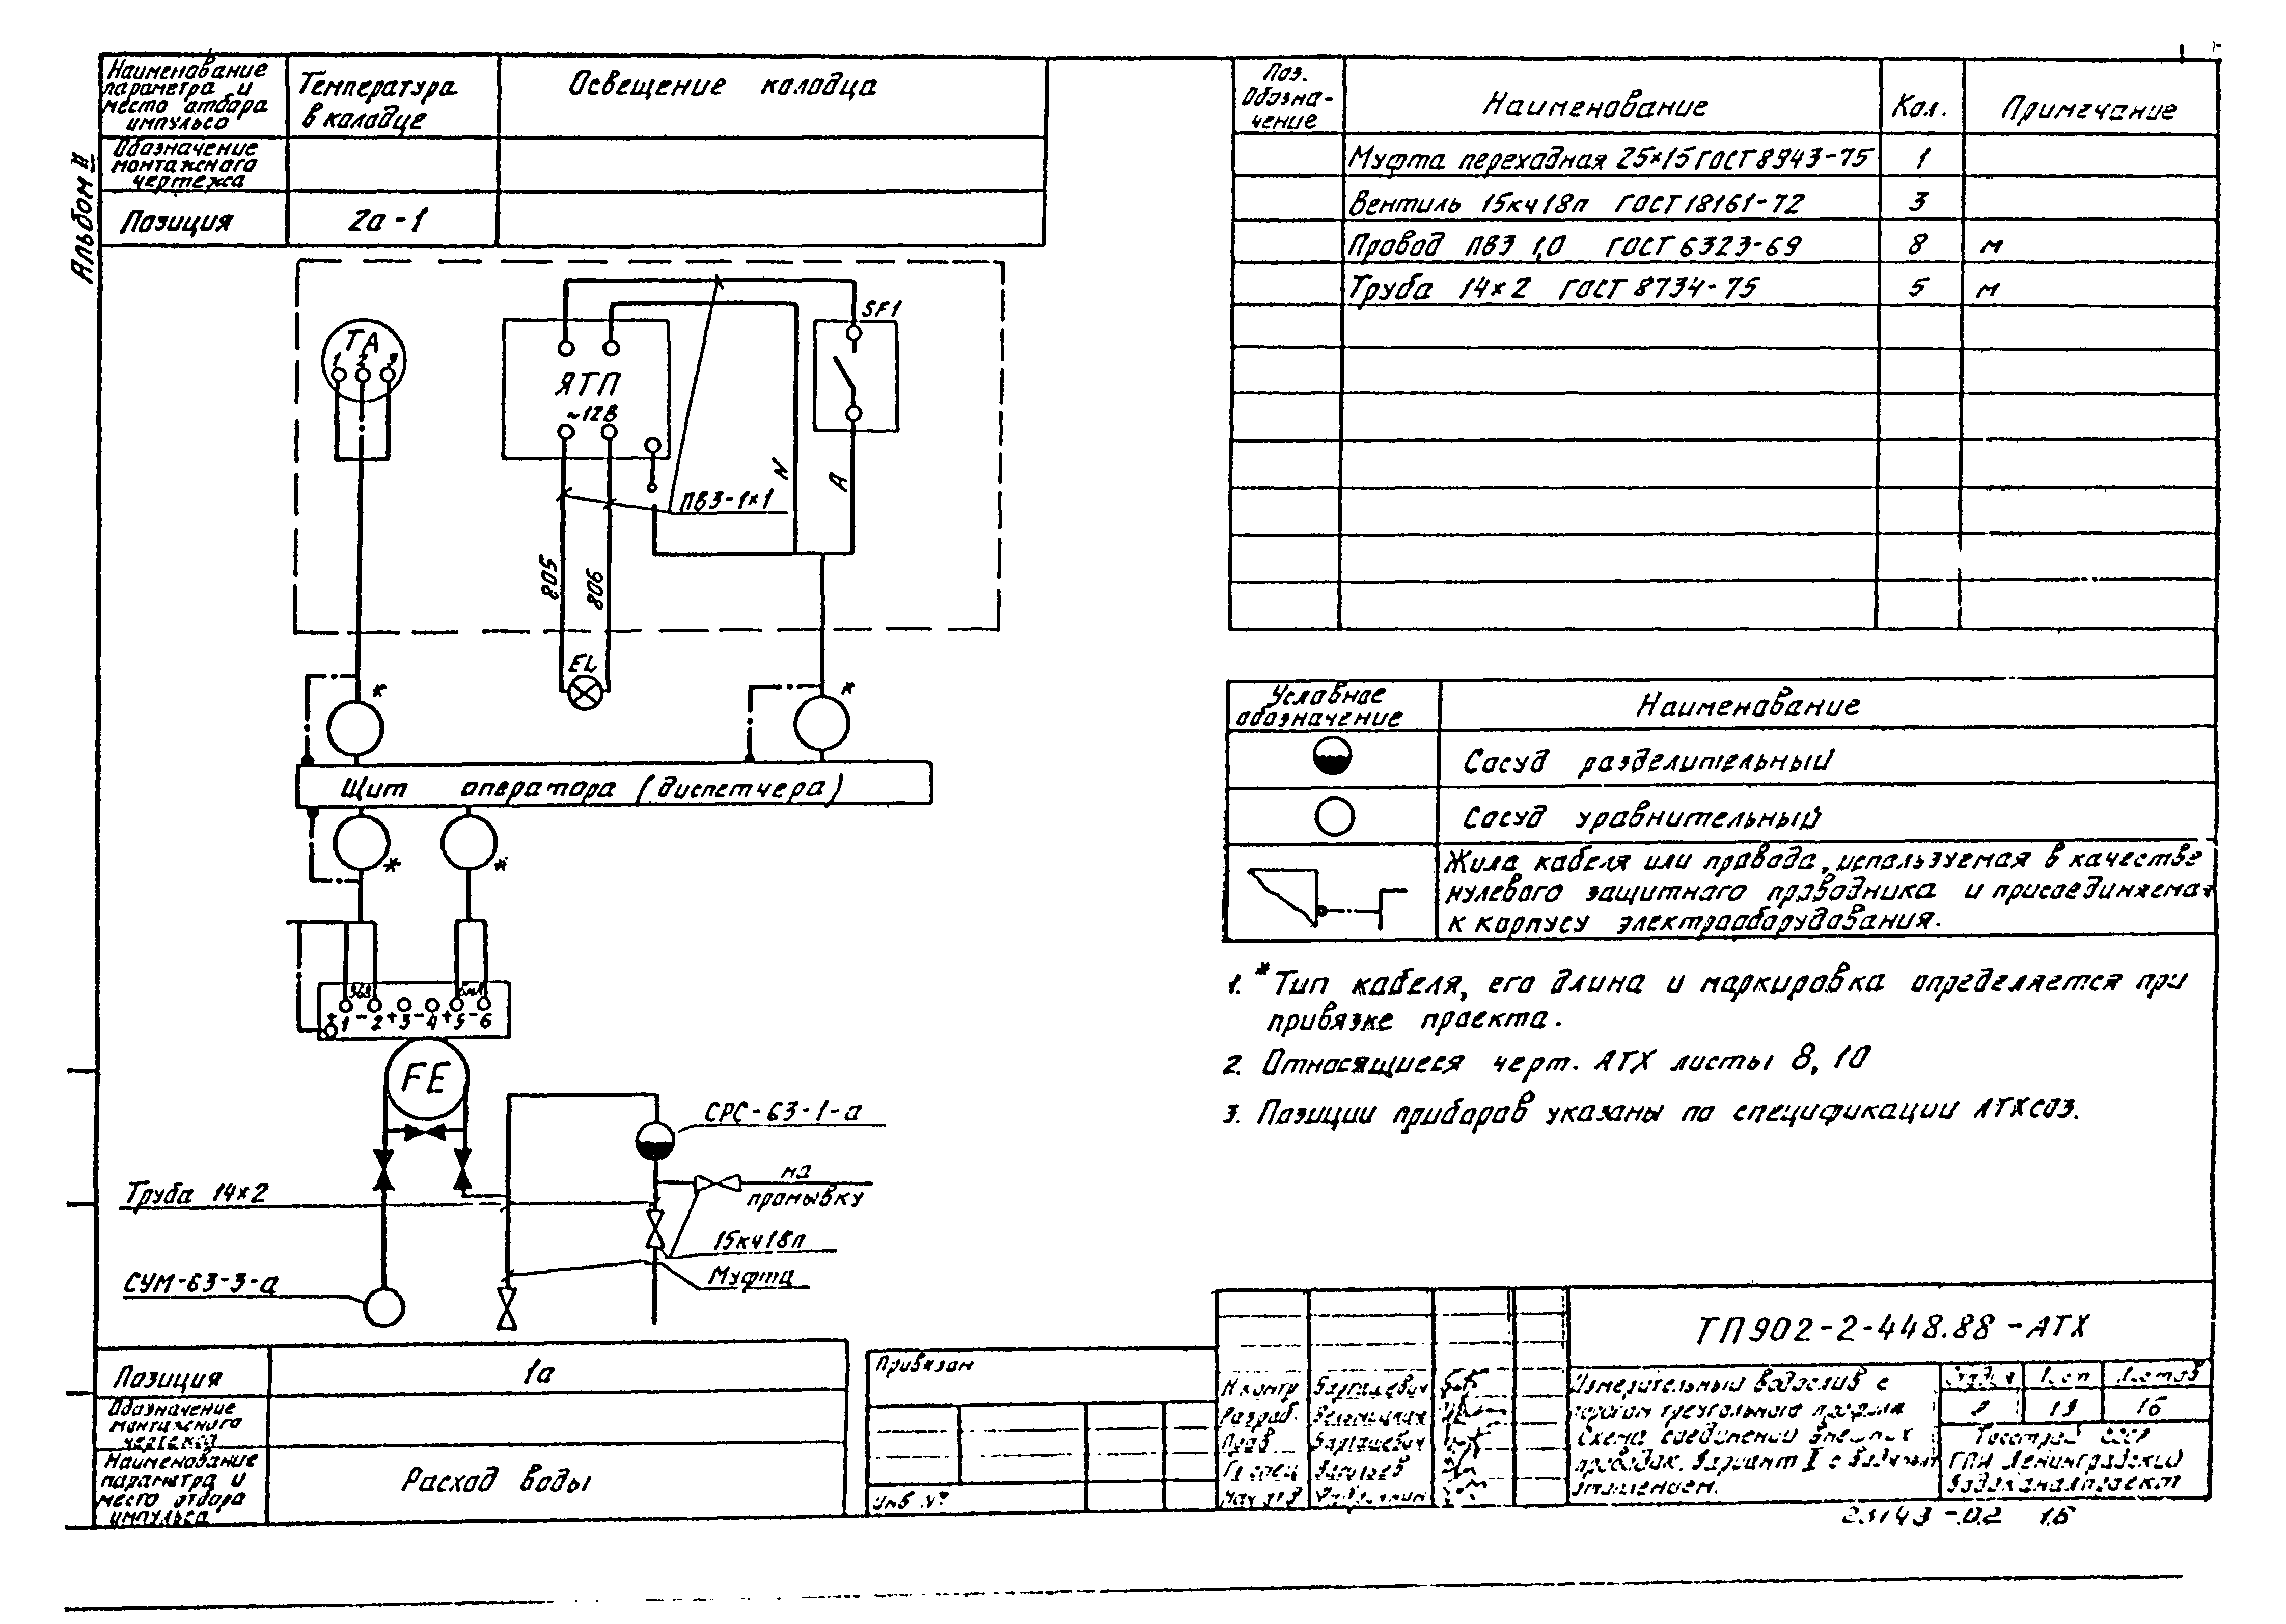 Альбом II
Наименование
параметра и
место отбора
импульса
Температура
в колодце
Освещение колодца
Обозначение
монтажного
чертежа
Позиция
2а-1
ТА
1 2 3
ЯТП
~12В
SF1
N
А
ПВ3-1×1
805
806
EL
*
*
Щит оператора (диспетчера)
*
*
+1 -2 +3 -4 +5 -6
FE
СРС-63-1-а
на
промывку
Труба 14×2
15кч18п
Муфта
СУМ-63-3-а
Позиция
1а
Обозначение
монтажного
чертежа
Наименование
параметра и
место отбора
импульса
Расход воды
Поз.
Обозна-
чение
Наименование
Кол.
Примечание
Муфта переходная 25×15 ГОСТ 8943-75 1
Вентиль 15кч18п ГОСТ 18161-72 3
Провод ПВ3 1,0 ГОСТ 6323-69 8 м
Труба 14×2 ГОСТ 8734-75 5 м
Условное
обозначение
Наименование
Сосуд разделительный
Сосуд уравнительный
Жила кабеля или провода, используемая в качестве
нулевого защитного проводника и присоединяемая
к корпусу электрооборудования.
1. * Тип кабеля, его длина и маркировка определяется при
привязке проекта.
2. Относящиеся черт. АТХ листы 8, 10
3. Позиции приборов указаны по спецификации АТХ СО3.
Привязан
Инв. №
ТП 902-2-448.88 -АТХ
Н контр
Разраб.
Пров
Гл спец
Нач отд
Измерительный водослив с
порогом треугольного профиля
Схема соединений внешних
проводок. Вариант I с водяным
отоплением.
Стадия
Лист
Листов
Р
19
16
Госстрой СССР
ГПИ Ленинградский
Водоканалпроект
23143 -02 16